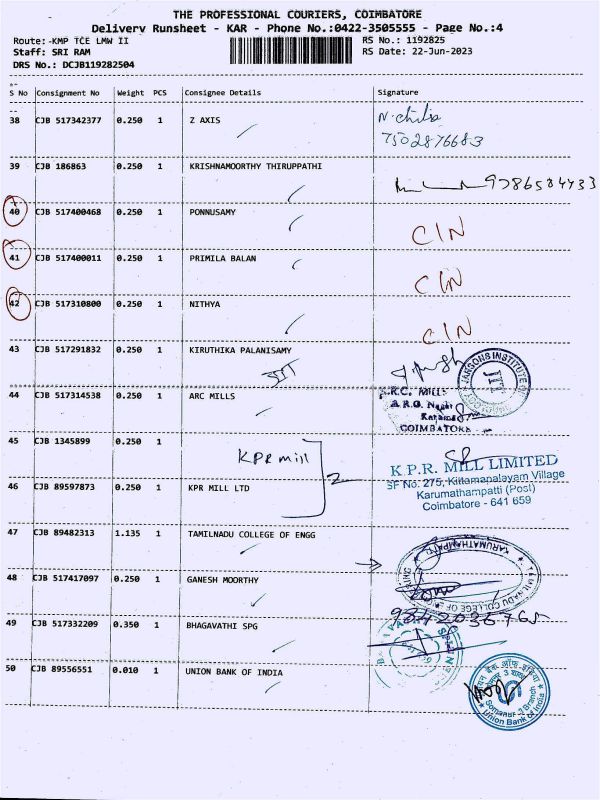 THE PROFESSIONAL COURIERS, COIMBATORE
Delivery Runsheet - KAR - Phone No.:0422-3505555 - Page No.:4
Route:-KMP TCE LMW II RS No.: 1192825
Staff: SRI RAM RS Date: 22-Jun-2023
DRS No.: DCJB119282504
S No Consignment No Weight PCS Consignee Details Signature
38 CJB 517342377 0.250 1 Z AXIS
7502876683
39 CJB 186863 0.250 1 KRISHNAMOORTHY THIRUPPATHI
9786584733
40 CJB 517400468 0.250 1 PONNUSAMY CIN
41 CJB 517400011 0.250 1 PRIMILA BALAN CIN
42 CJB 517310800 0.250 1 NITHYA CIN
43 CJB 517291832 0.250 1 KIRUTHIKA PALANISAMY
JIT
JANSONS INSTITUTE OF
JIT
44 CJB 517314538 0.250 1 ARC MILLS
A.R.C. MILLS
COIMBATORE
45 CJB 1345899 0.250 1
KPR mill 2
K.P.R. MILL LIMITED
SF No: 275, Kittampalayam Village
Karumathampatti (Post)
Coimbatore - 641 659
46 CJB 89597873 0.250 1 KPR MILL LTD
47 CJB 89482313 1.135 1 TAMILNADU COLLEGE OF ENGG
KARUMATHAMPATTI
TAMILNADU COLLEGE OF
48 CJB 517417097 0.250 1 GANESH MOORTHY
49 CJB 517332209 0.350 1 BHAGAVATHI SPG
50 CJB 89556551 0.010 1 UNION BANK OF INDIA
Somanur Branch
Union Bank of India